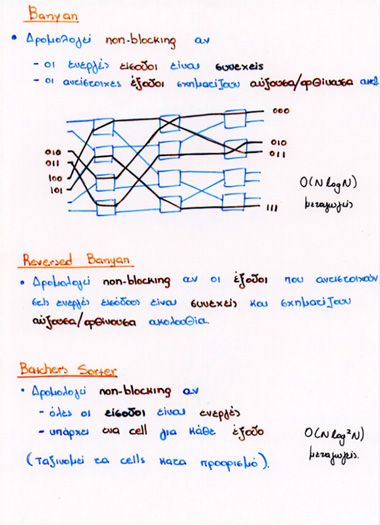 Banyan
• Δρομολογεί non-blocking αν
- οι ενεργές είσοδοι είναι συνεχείς
- οι αντίστοιχες έξοδοι σχηματίζουν αύξουσα/φθίνουσα ακολ
000
010
011
100
101
010
011
111
O(N logN)
μεταγωγείς
Reversed Banyan
• Δρομολογεί non-blocking αν οι έξοδοι που αντιστοιχούν
στις ενεργές εισόδους είναι συνεχείς και σχηματίζουν
αύξουσα/φθίνουσα ακολουθία.
Batchers Sorter
• Δρομολογεί non-blocking αν
- όλες οι είσοδοι είναι ενεργές
- υπάρχει ένα cell για κάθε έξοδο
O(N log²N)
μεταγωγείς.
(Ταξινομεί τα cells κατά προορισμό).